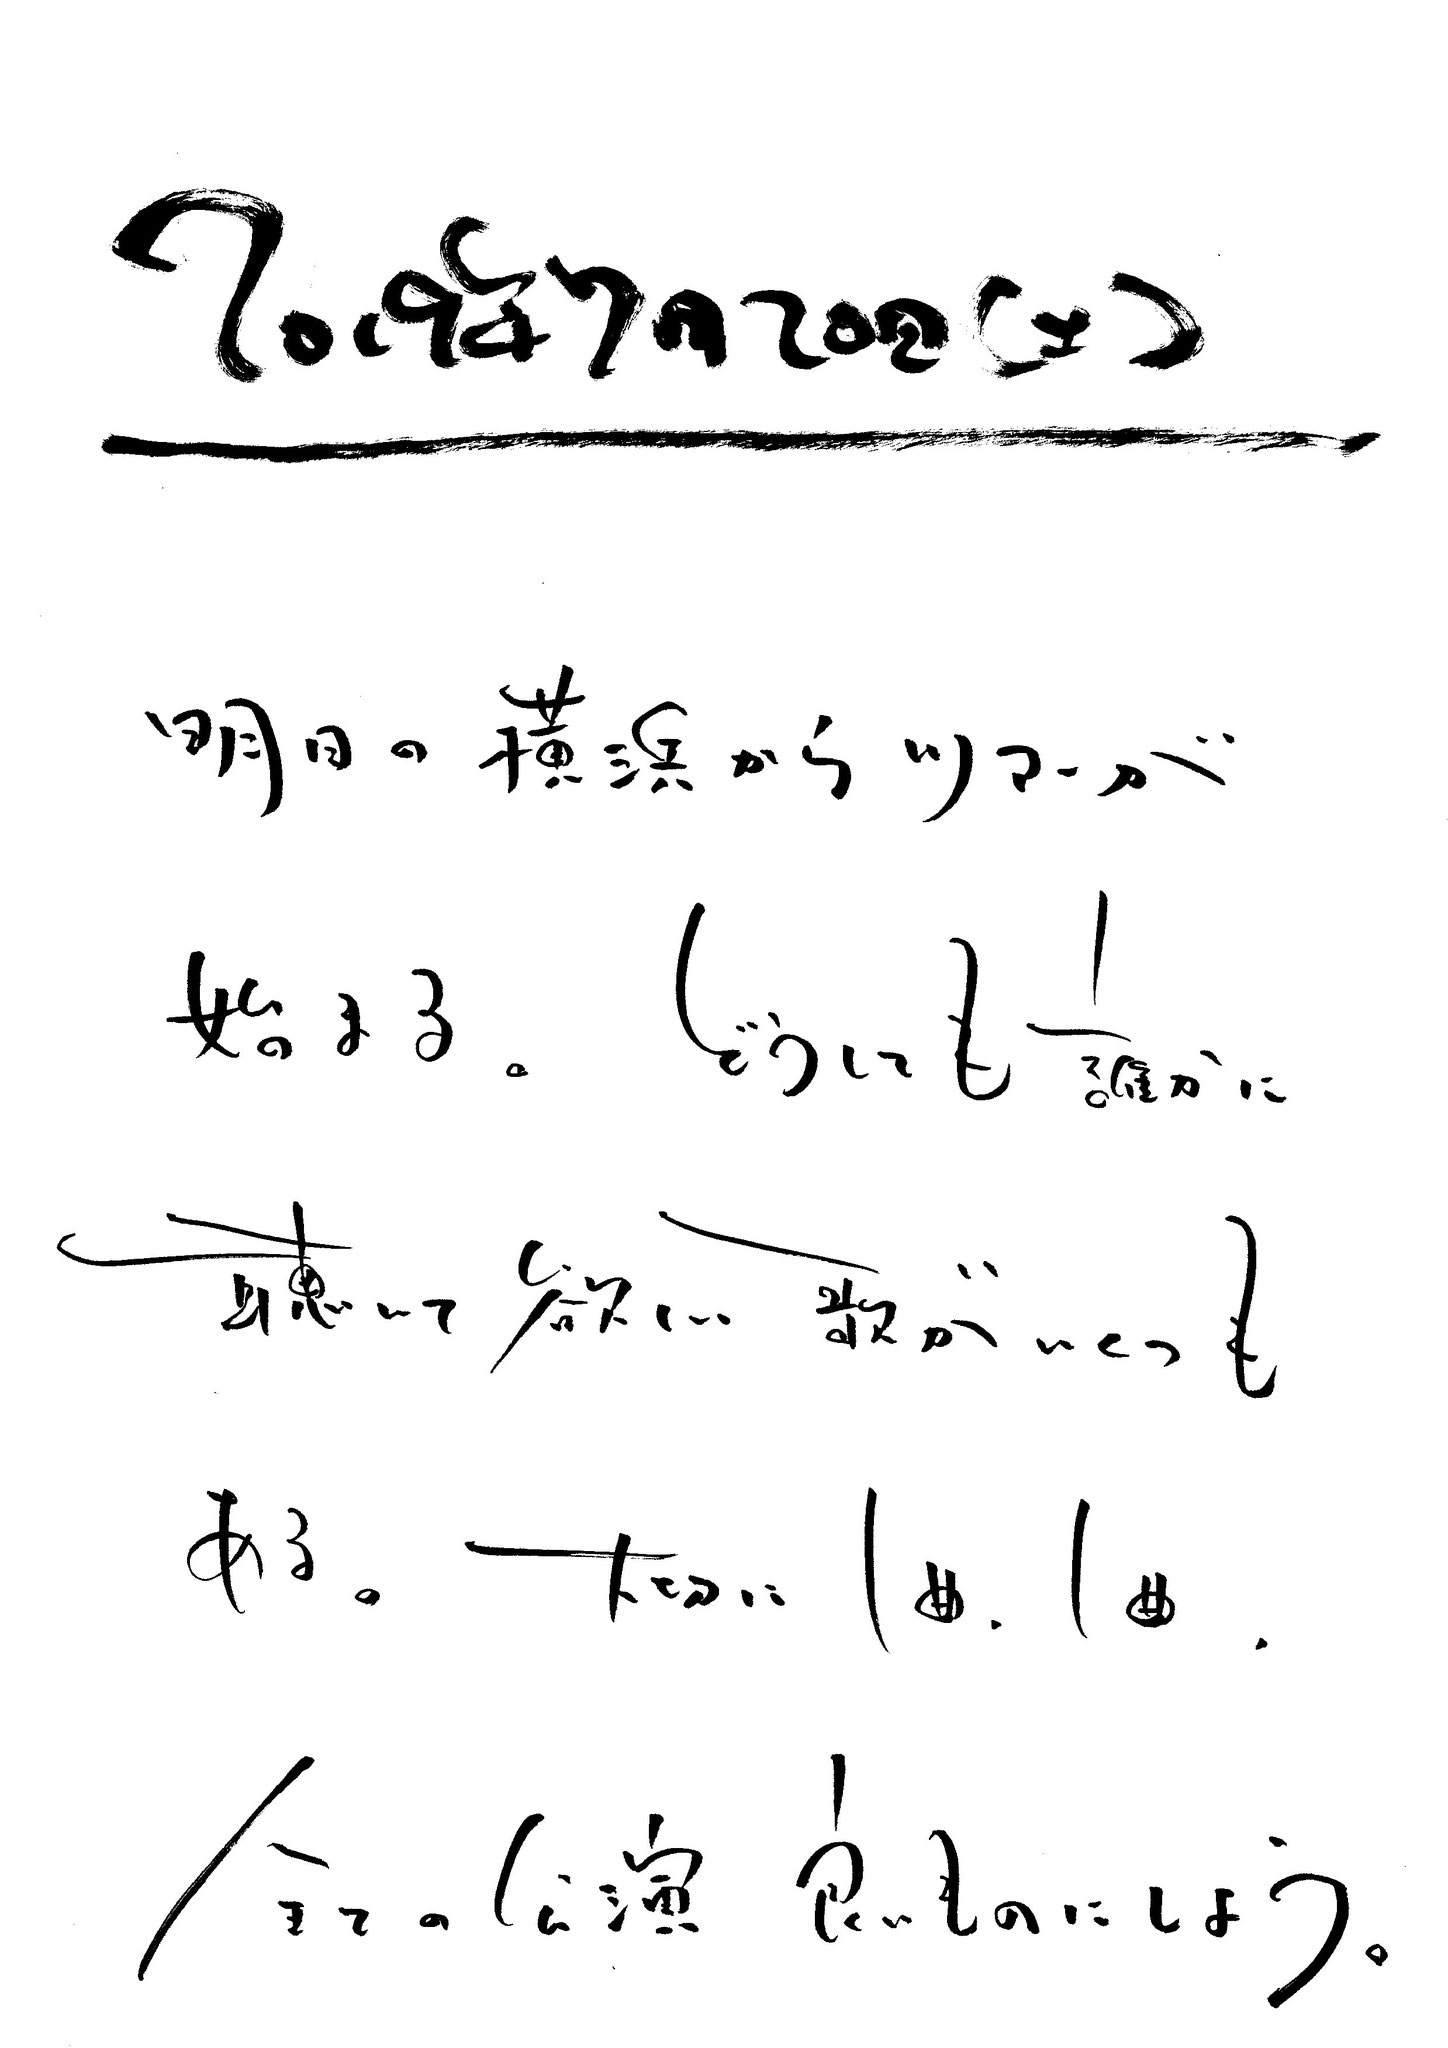 2019年7月20日(土)
明日の横浜からツアーが
始まる。 どうしても誰かに
聴いて欲しい 歌がいくつも
ある。 大切に 1曲、1曲、
全ての公演 良いものにしよう。